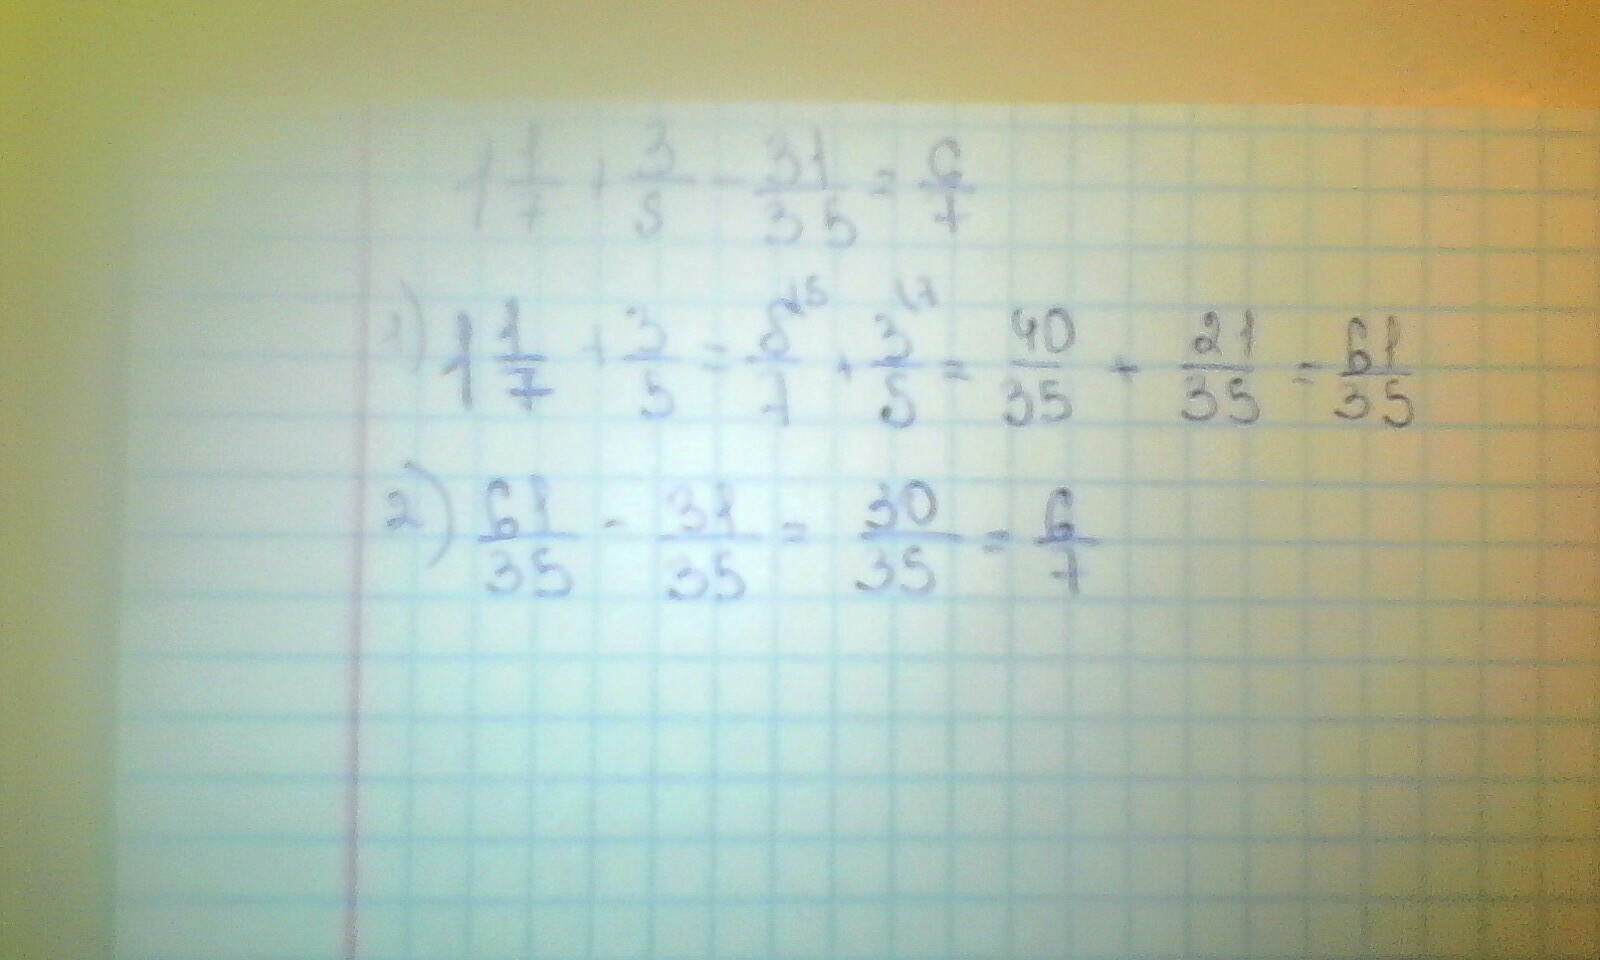 1 1/7 + 3/5 - 31/35 = 6/7
1) 1 1/7 + 3/5 = 8\5/7 + 3\7/5 = 40/35 + 21/35 = 61/35
2) 61/35 - 31/35 = 30/35 = 6/7